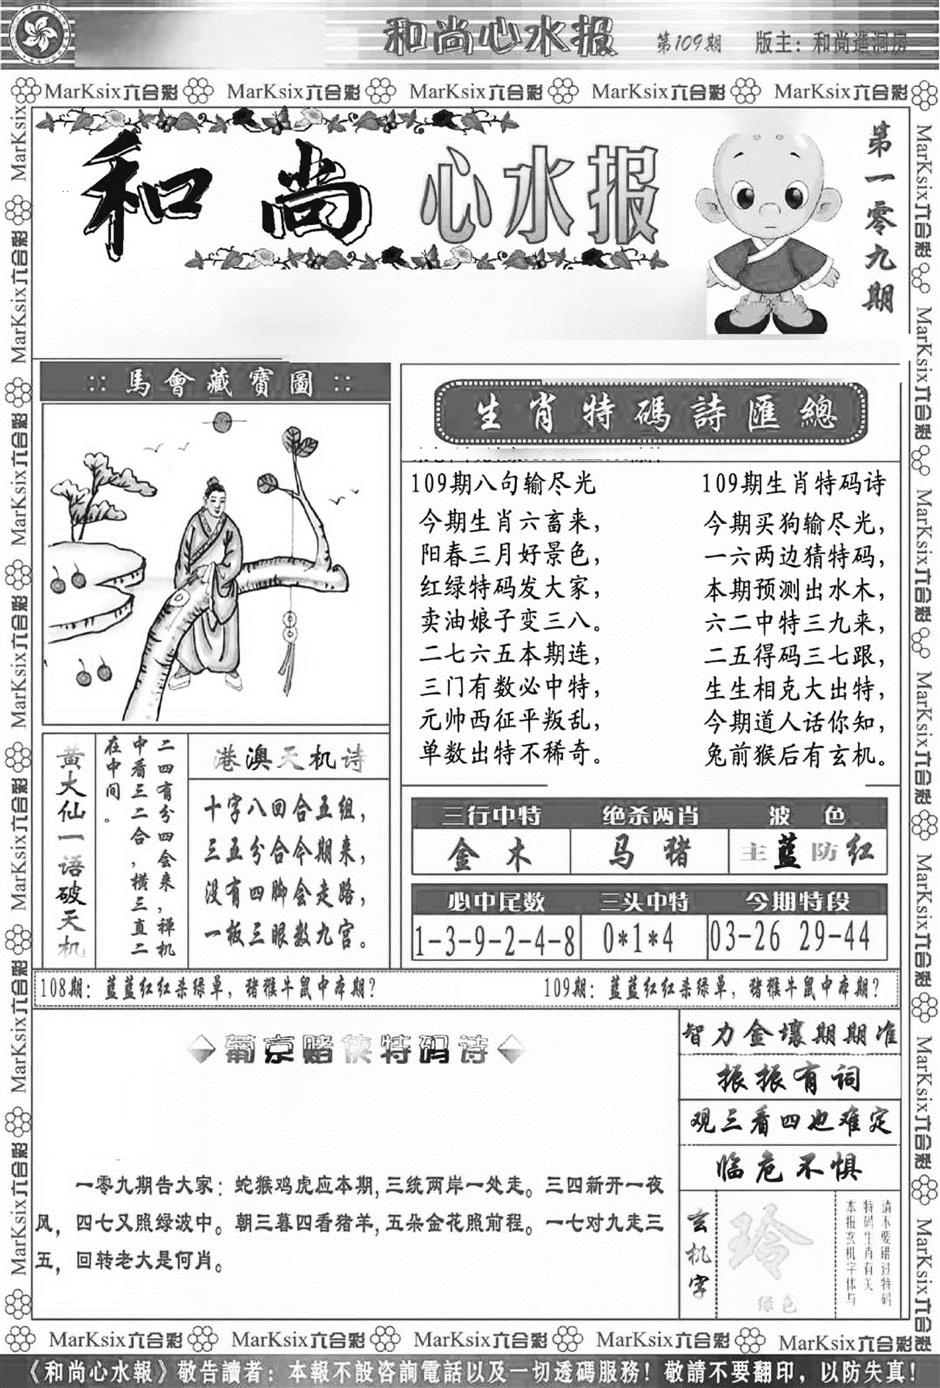 和尚心水报 第109期 版主：和尚进洞房
MarKsix六合彩 MarKsix六合彩 MarKsix六合彩 MarKsix六合彩 MarKsix六合彩
和尚心水报
第一零九期
::馬會藏寶圖::
生肖特碼詩匯總
109期八句输尽光
今期生肖六畜来，
阳春三月好景色，
红绿特码发大家，
卖油娘子变三八。
二七六五本期连，
三门有数必中特，
元帅西征平叛乱，
单数出特不稀奇。
109期生肖特码诗
今期买狗输尽光，
一六两边猜特码，
本期预测出水木，
六二中特三九来，
二五得码三七跟，
生生相克大出特，
今期道人话你知，
兔前猴后有玄机。
黄大仙一语破天机
二四有分四会来，禅机
中看三二合，横三直二
在中间。
港澳天机诗
十字八回合五组，
三五分合今期来，
没有四脚会走路，
一板三眼数九宫。
三行中特 绝杀两肖 波色
金木 马猪 主蓝防红
必中尾数 三头中特 今期特段
1-3-9-2-4-8 0*1*4 03-26 29-44
108期：蓝蓝红红杀绿单，猪猴牛鼠中本期？
109期：蓝蓝红红杀绿单，猪猴牛鼠中本期？
葡京赌侠特码诗
一零九期告大家：蛇猴鸡虎应本期，三统两岸一处走。三四新开一夜
风，四七又照绿波中。朝三暮四看猪羊，五朵金花照前程。一七对九走三
五，回转老大是何肖。
智力金壤期期准
振振有词
观三看四也难定
临危不惧
玄机字
玲
绿色
请不要错过特码
特码生肖有关
本报玄机字体与
MarKsix六合彩 MarKsix六合彩 MarKsix六合彩 MarKsix六合彩 MarKsix六合彩
《和尚心水報》敬告讀者：本報不設咨詢電話以及一切透碼服務！敬請不要翻印，以防失真！